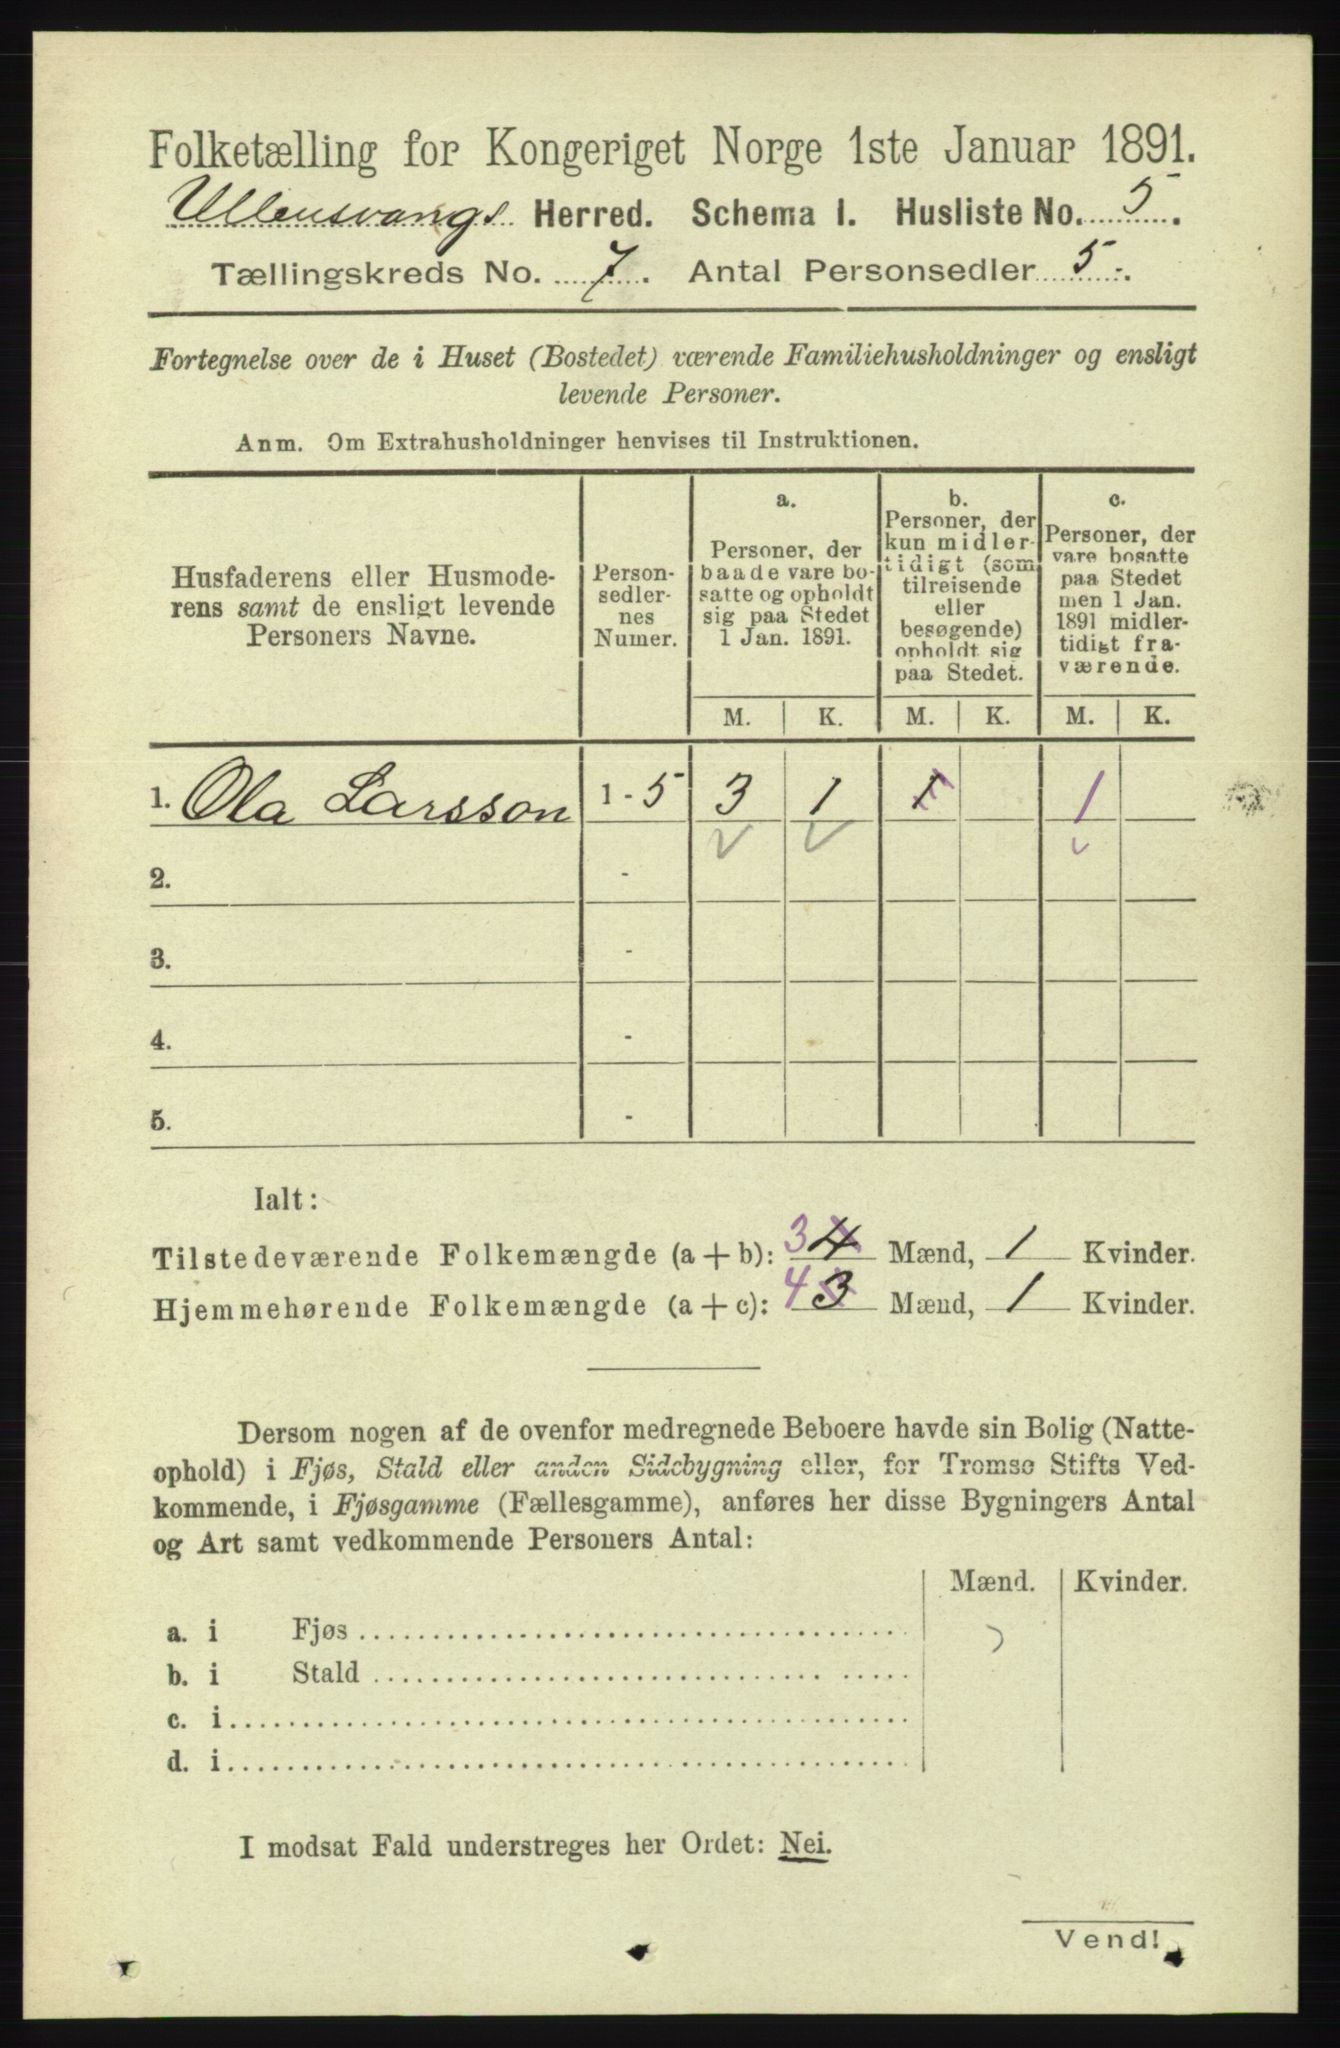 Folketælling for Kongeriget Norge 1ste Januar 1891.
Ullensvangs Herred. Schema I. Husliste No. 5.
Tællingskreds No. 7. Antal Personsedler 5.
Fortegnelse over de i Huset (Bostedet) værende Familiehusholdninger og ensligt
levende Personer.
Anm. Om Extrahusholdninger henvises til Instruktionen.
Husfaderens eller Husmode-
rens samt de ensligt levende
Personers Navne.
Person-
sedler-
nes
Numer.
a.
Personer, der
baade vare bo-
satte og opholdt
sig paa Stedet
1 Jan. 1891.
b.
Personer, der
kun midler-
tidigt (som
tilreisende
eller
besøgende)
opholdt sig
paa Stedet.
c.
Personer, der
vare bosatte
paa Stedet
men 1 Jan.
1891 midler-
tidigt fra-
værende.
M. K. M. K. M. K.
1. Ola Larsson 1 - 5 3 1 1 1
2. -
3. -
4. -
5. -
Ialt:
Tilstedeværende Folkemængde (a + b): 3 4 Mænd, 1 Kvinder.
Hjemmehørende Folkemængde (a + c): 4 3 Mænd, 1 Kvinder.
Dersom nogen af de ovenfor medregnede Beboere havde sin Bolig (Natte-
ophold) i Fjøs, Stald eller anden Sidebygning eller, for Tromsø Stifts Ved-
kommende, i Fjøsgamme (Fællesgamme), anføres her disse Bygningers Antal
og Art samt vedkommende Personers Antal:
Mænd. Kvinder.
a. i Fjøs
b. i Stald
c. i
d. i
I modsat Fald understreges her Ordet: Nei.
Vend!